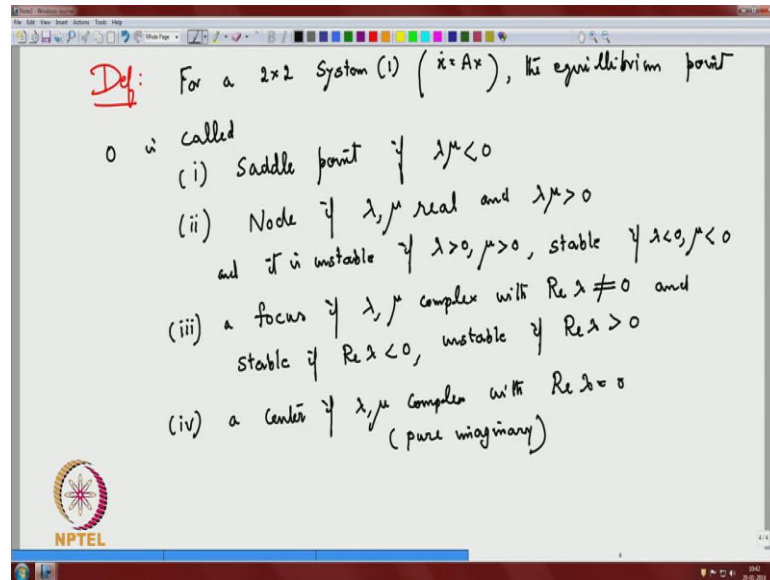 Note3 - Windows Journal
File Edit View Insert Actions Tools Help
Whole Page
Def: For a 2×2 System (1) (ẋ = Ax), the equillibrium point
0 is called
(i) Saddle point if λμ < 0
(ii) Node if λ, μ real and λμ > 0
and it is unstable if λ>0, μ>0, stable if λ<0, μ<0
(iii) a focus if λ, μ complex with Re λ ≠ 0 and
stable if Re λ < 0, unstable if Re λ > 0
(iv) a center if λ, μ complex with Re λ = 0
(pure imaginary)
NPTEL
4/4
4
10:42